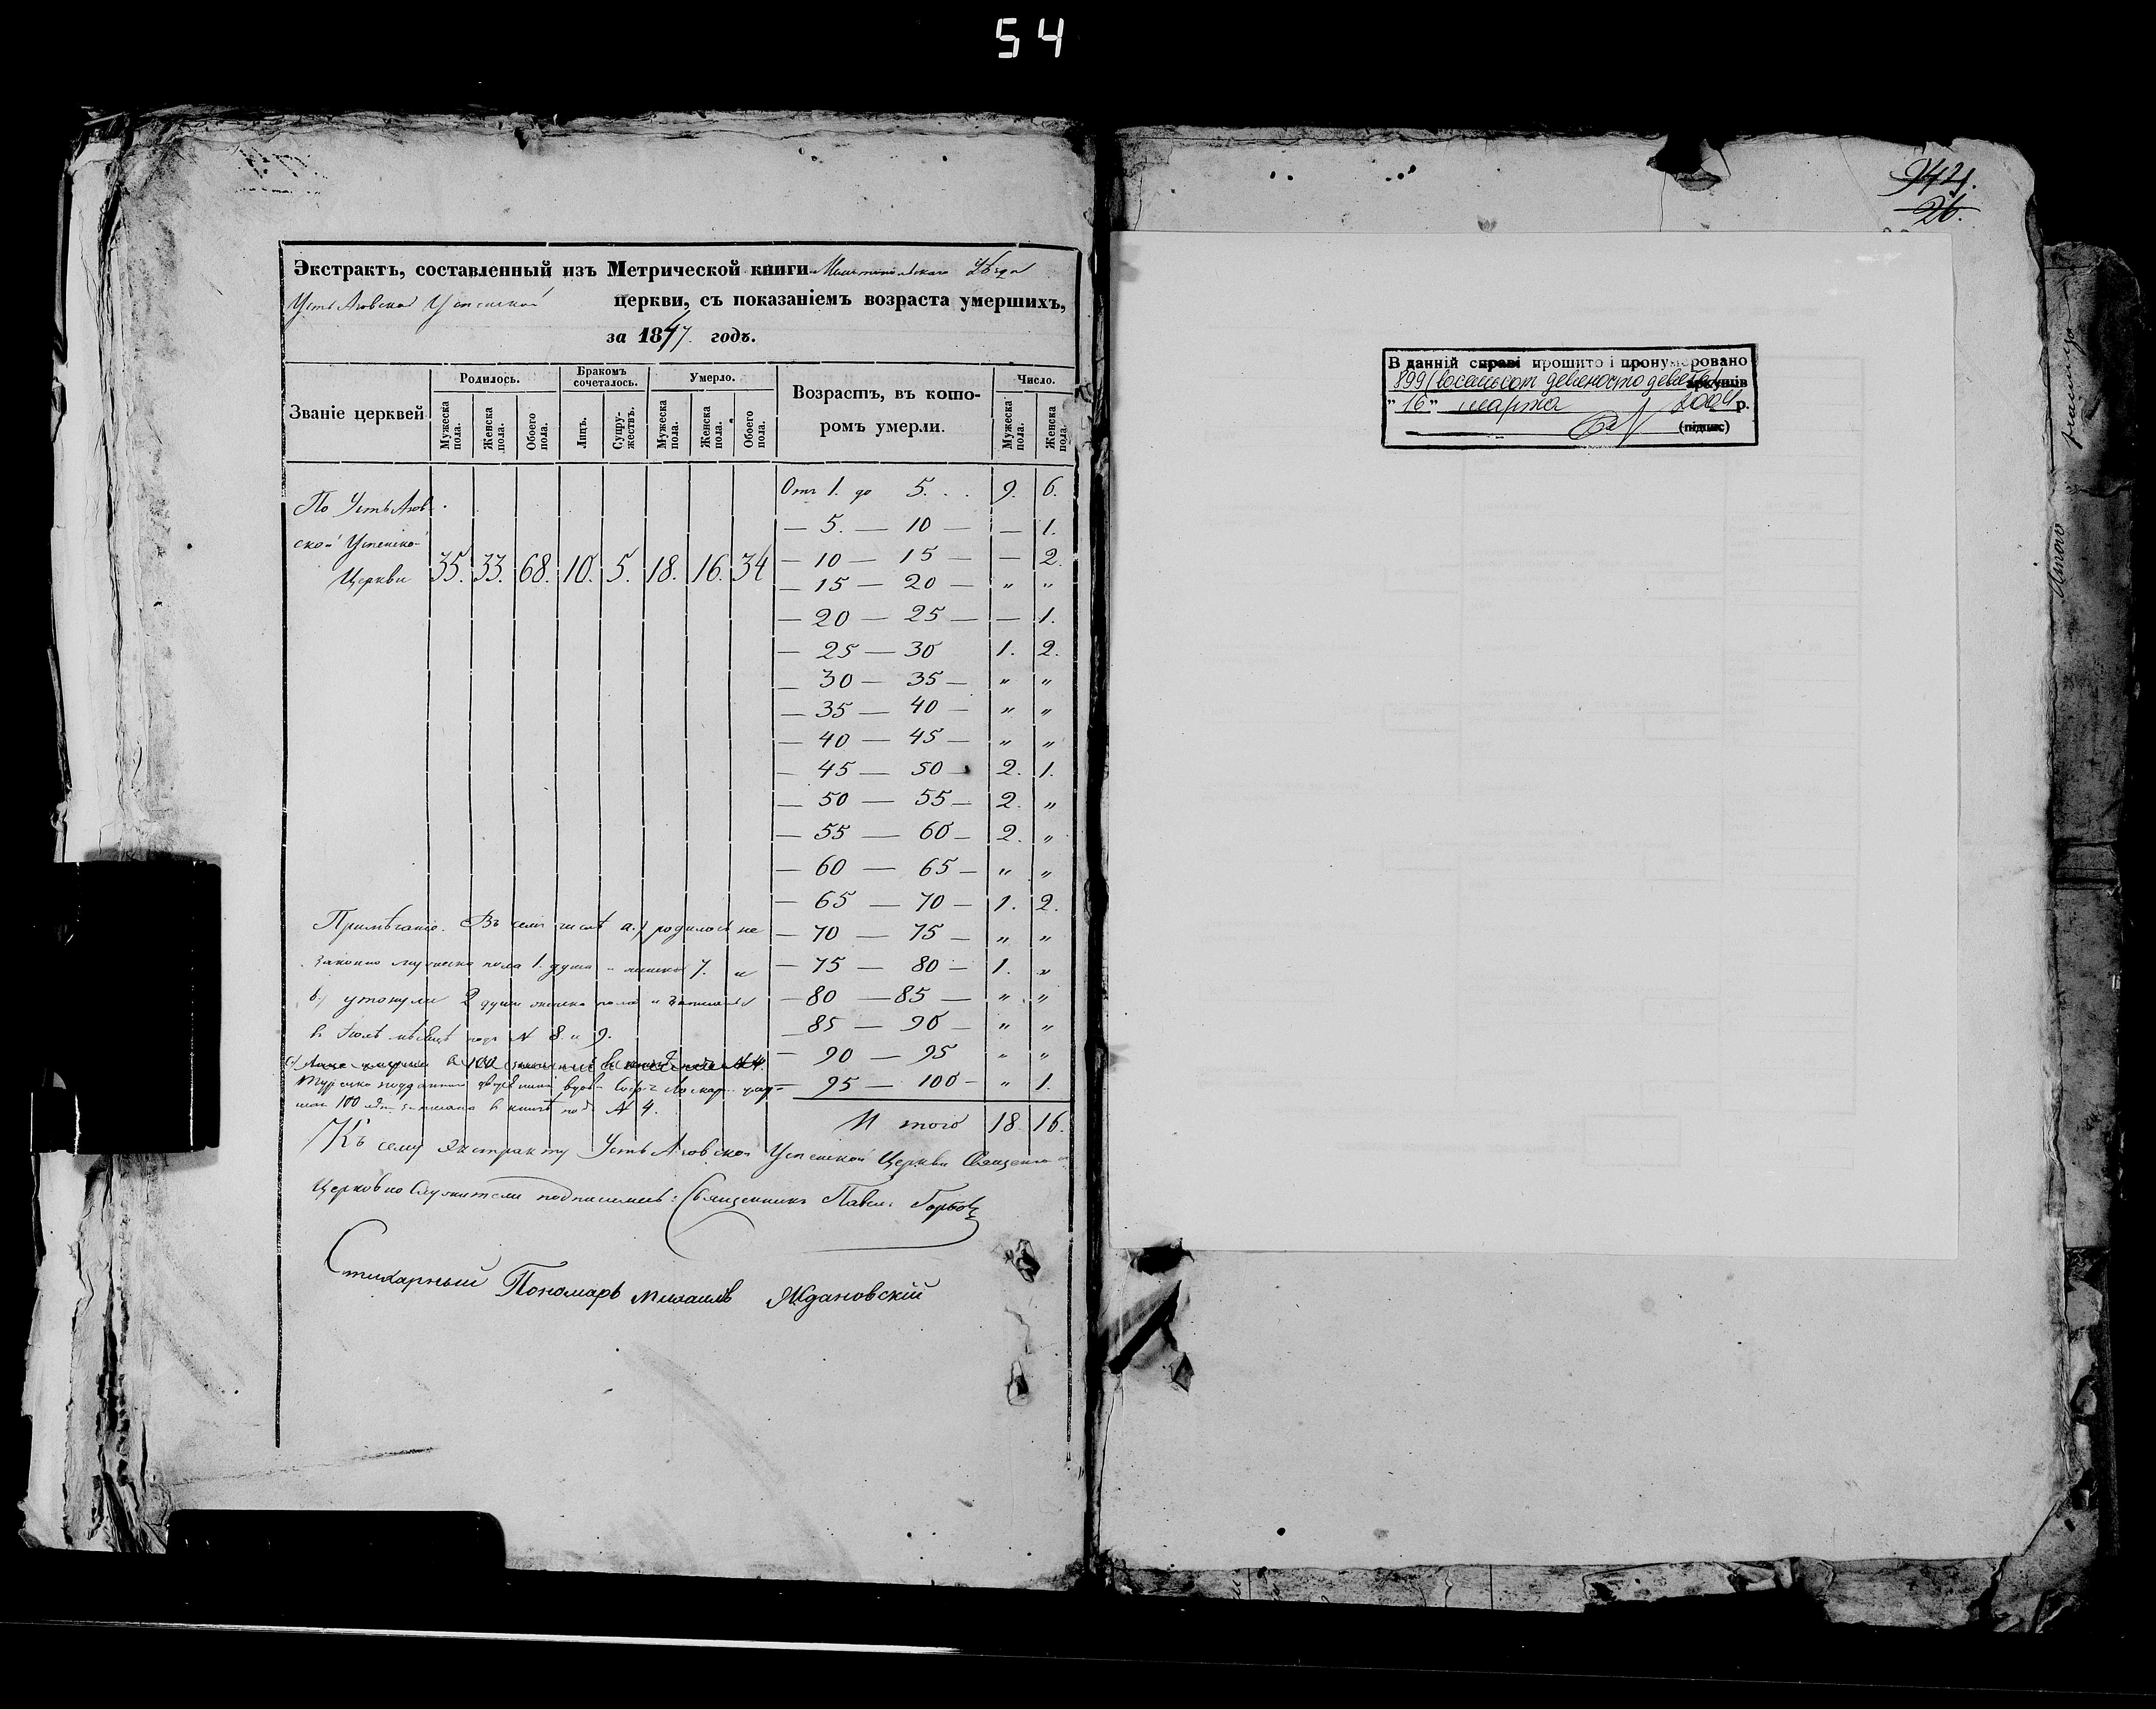 54
Экстрактъ, составленный изъ Метрической книги Мелитопольскаго Уѣзда
Усть Азовской Успенской церкви, съ показаніемъ возраста умершихъ,
за 1847. годъ.
Званіе церквей
Родилось.
Бракомъ сочеталось.
Умерло.
Возрастъ, въ которомъ умерли.
Число.
Мужеска пола.
Женска пола.
Обоего пола.
Лицъ.
Супружествъ.
Мужеска пола.
Женска пола.
Обоего пола.
Мужеска пола.
Женска пола.
По Усть Азов
ской Успенской
Церкви 35. 33. 68. 10. 5. 18. 16. 34
Отъ 1. до 5. . . 9. 6.
— 5. — 10 — — 1.
— 10 — 15 — — 2.
— 15 — 20 — „ „
— 20 — 25 — — 1.
— 25 — 30 1. 2.
— 30 — 35 — „ „
— 35 — 40 — „ „
— 40 — 45 — „ „
— 45 — 50 — 2. 1.
— 50 — 55 — 2. „
— 55 — 60 — 2. „
— 60 — 65 — „ „
— 65 — 70 — 1. 2.
— 70 — 75 — „ „
— 75 — 80 — 1. „
— 80 — 85 — „ „
— 85 — 90 — „ „
— 90 — 95 „ „
— 95 — 100 — „ 1.
И того 18. 16.
Примѣчаніе. Въ семъ числѣ а.) родилось не
законно мужеска пола 1. душа и
в.) утонули 2 души
в Іюлѣ мѣсяцѣ подъ № 8. и 9.
100 № 4
вдов
100 лѣт записана в книгѣ под № 4.
Къ сему экстракту Усть Азовской Успенской Церкви Священно
Церковно Служители подписались: Священникъ Павелъ
Стихарный Пономарь Михаилъ Ждановскій
942.
26.
В данній справі прошито і пронумеровано
899 (восемьсот девяносто девять) аркушів
„ 16 “ марта 2004 р.
(підпис)